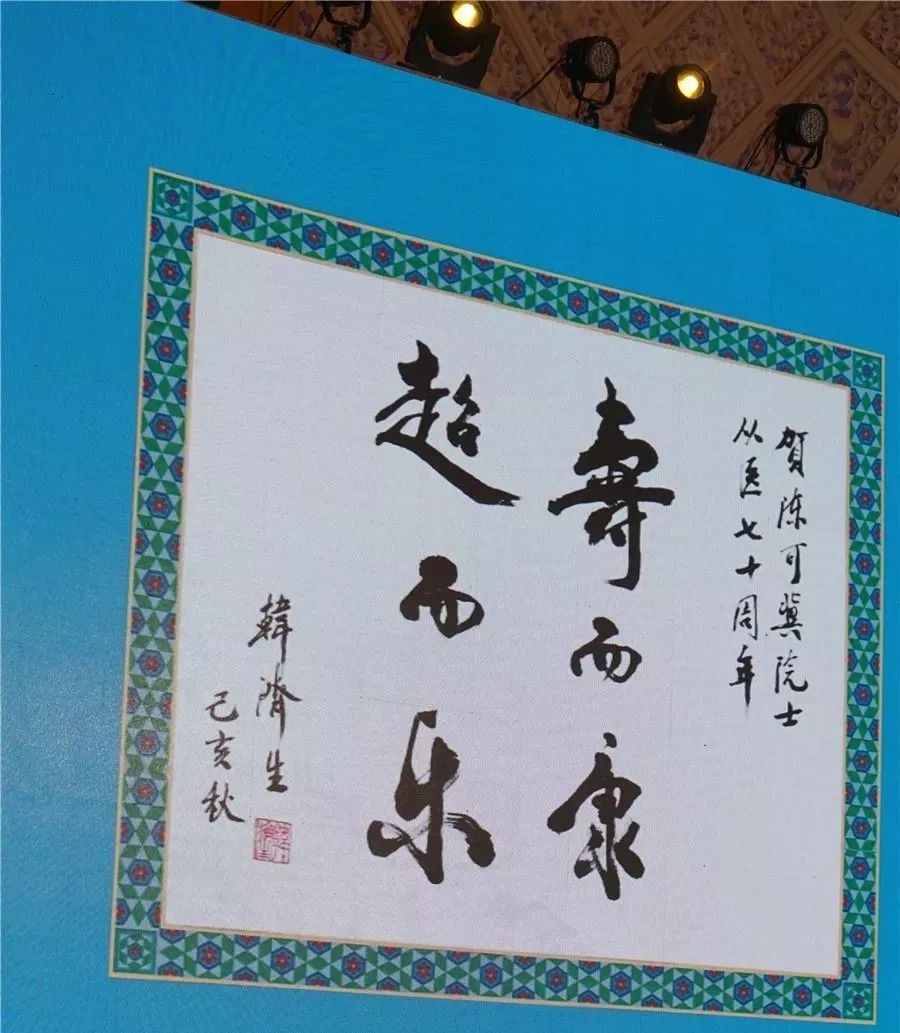 賀陈可冀院士
从医七十周年
壽而康
超而乐
韓濟生
己亥秋